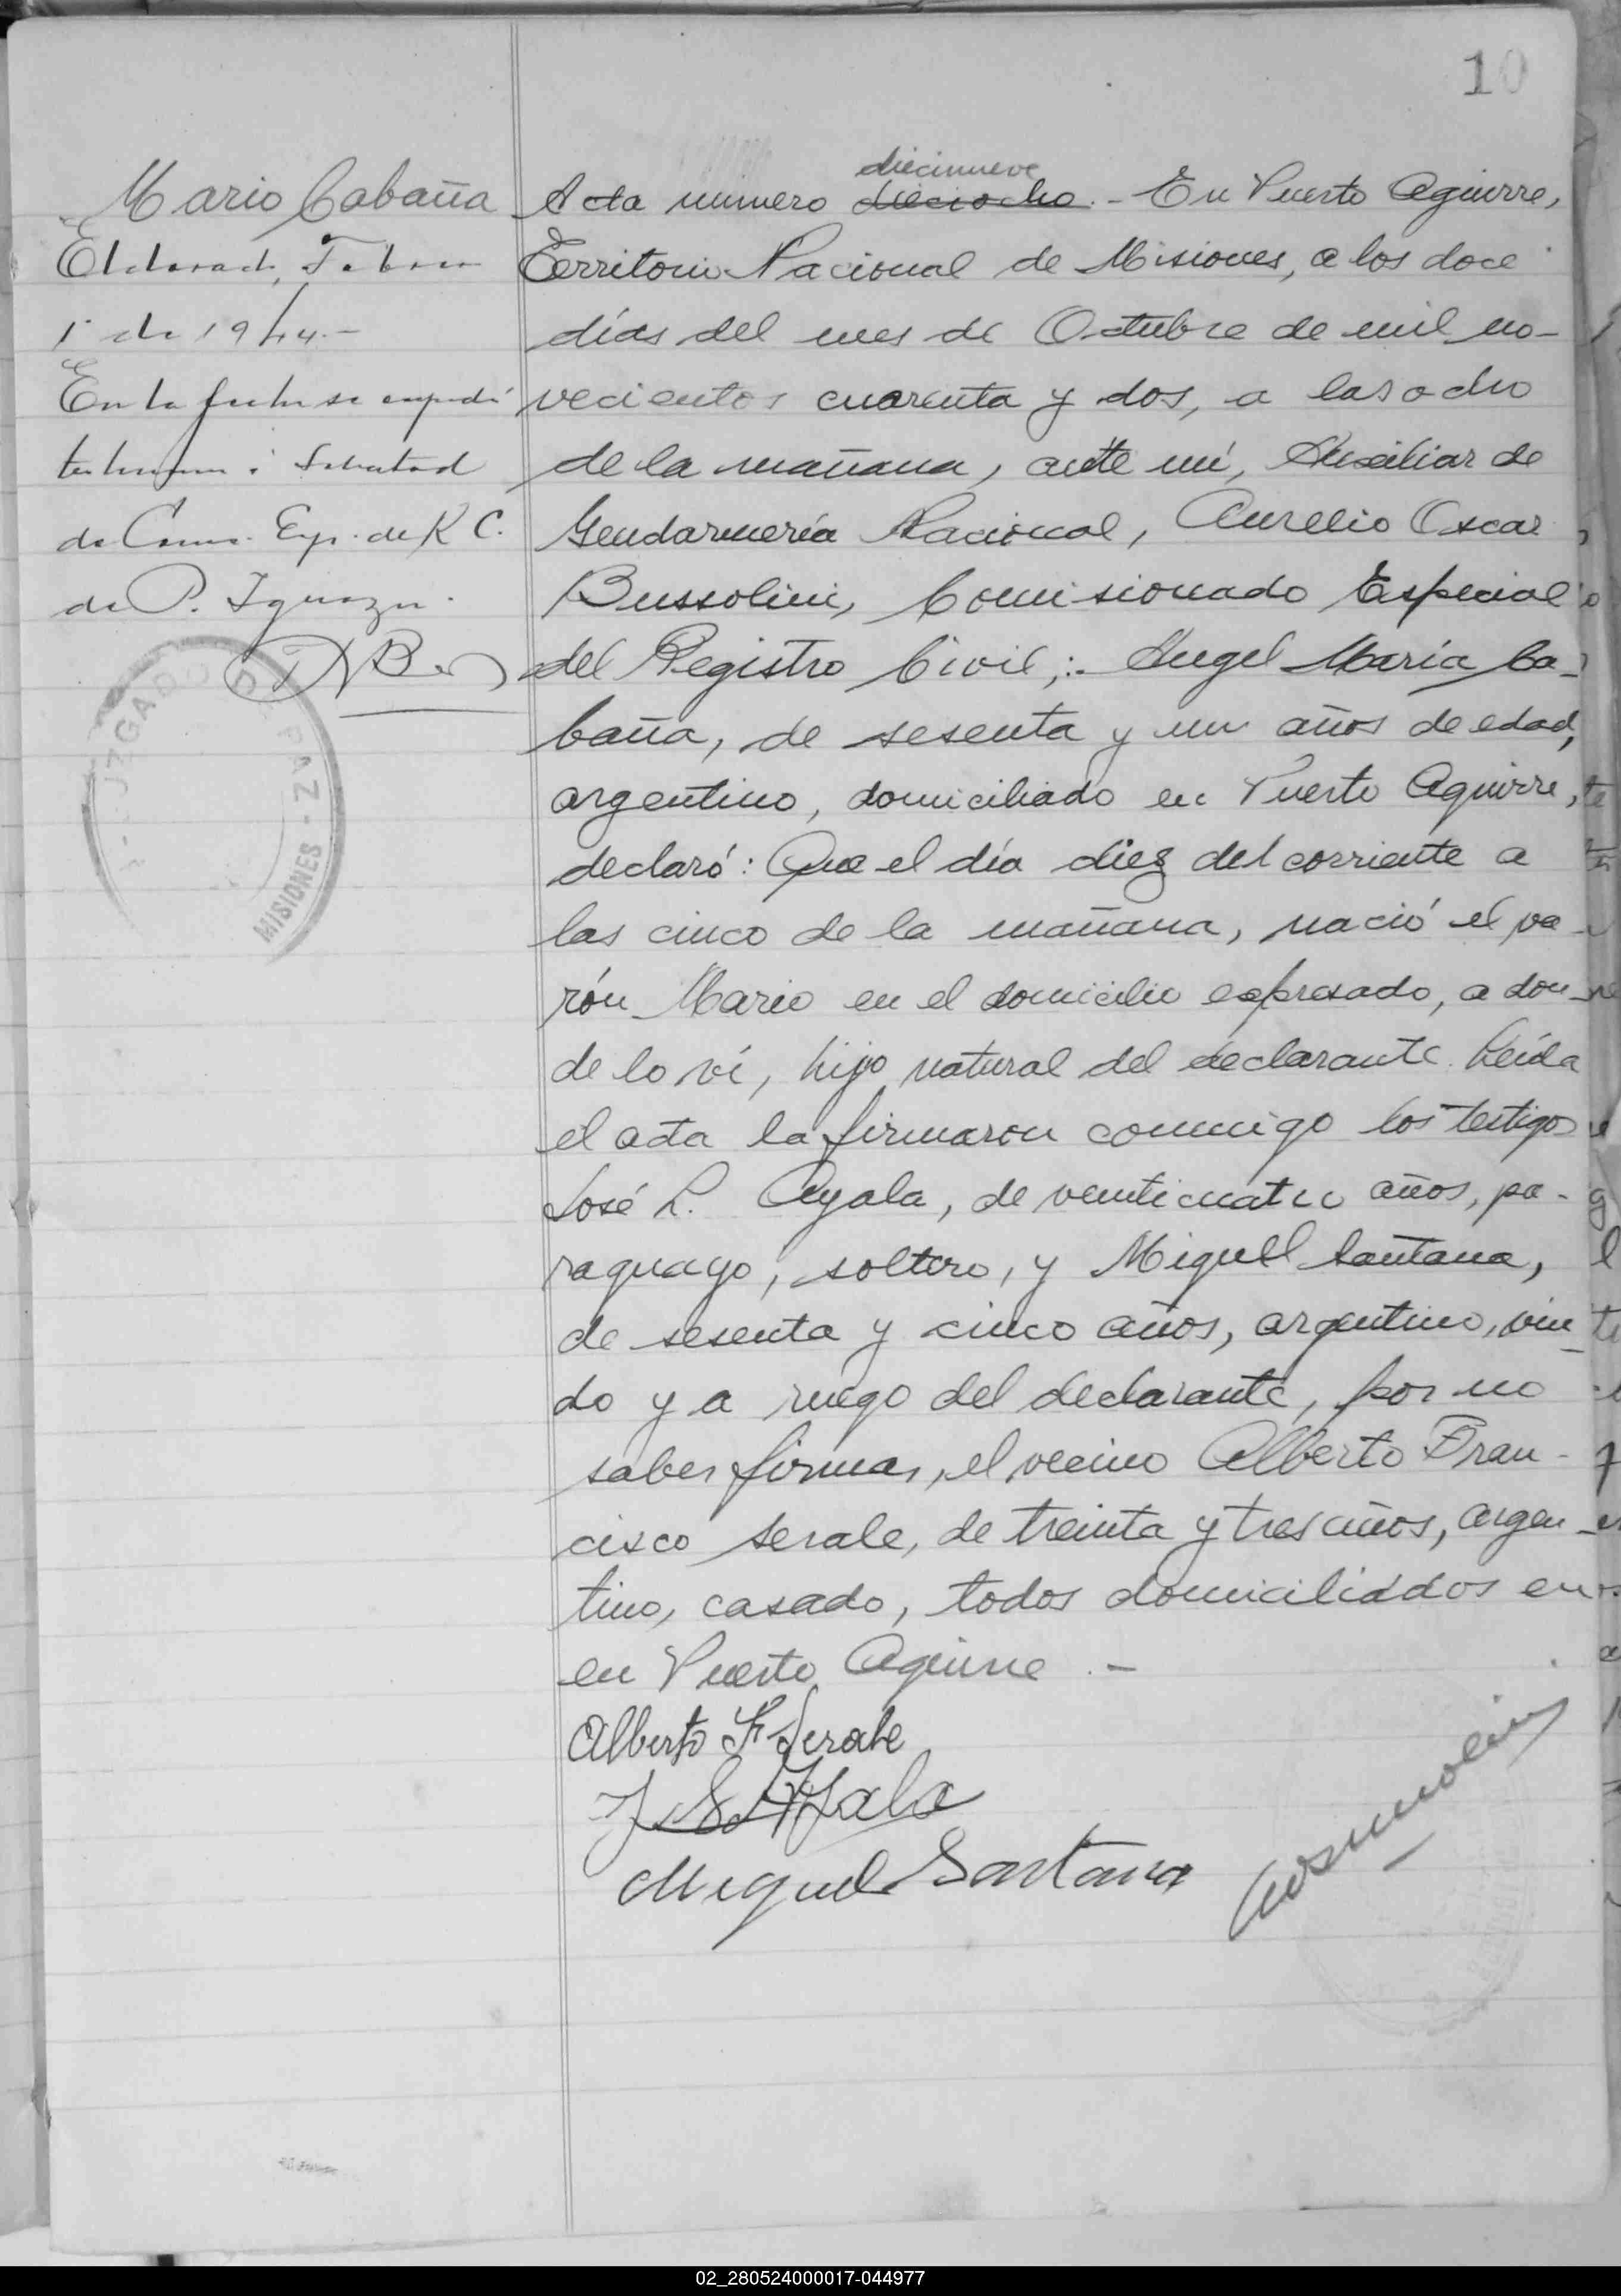 10
Mario Cabaña
Eldorado, Febrero
1º de 1944.-
En la fecha se expidió
testimonio a solicitud
de Com. Esp. de R C.
de P. Iguazú.
JUZGADO DE PAZ - MISIONES
diecinueve
Acta número dieciocho.- En Puerto Aguirre,
Territorio Nacional de Misiones, a los doce
días del mes de Octubre de mil no-
vecientos cuarenta y dos, a las ocho
de la mañana, ante mí, Auxiliar de
Gendarmería Nacional, Aurelio Oscar
Bussolini, Comisionado Especial
del Registro Civil,:- Angel María Ca-
baña, de sesenta y un años de edad,
argentino, domiciliado en Puerto Aguirre,
declaró: Que el día diez del corriente a
las cinco de la mañana, nació el va-
rón Mario en el domicilio expresado, a don-
de lo ví, hijo natural del declarante. Leída
el acta la firmaron conmigo los testigos
José L. Ayala, de veinticuatro años, pa-
raguayo, soltero, y Miguel Santana,
de sesenta y cinco años, argentino, viu-
do y a ruego del declarante, por no
saber firmar, el vecino Alberto Fran-
cisco Serale, de treinta y tres años, argen-
tino, casado, todos domiciliados en
en Puerto Aguirre.-
Alberto F Serale
J S Ayala
Miguel Santana
02_280524000017-044977